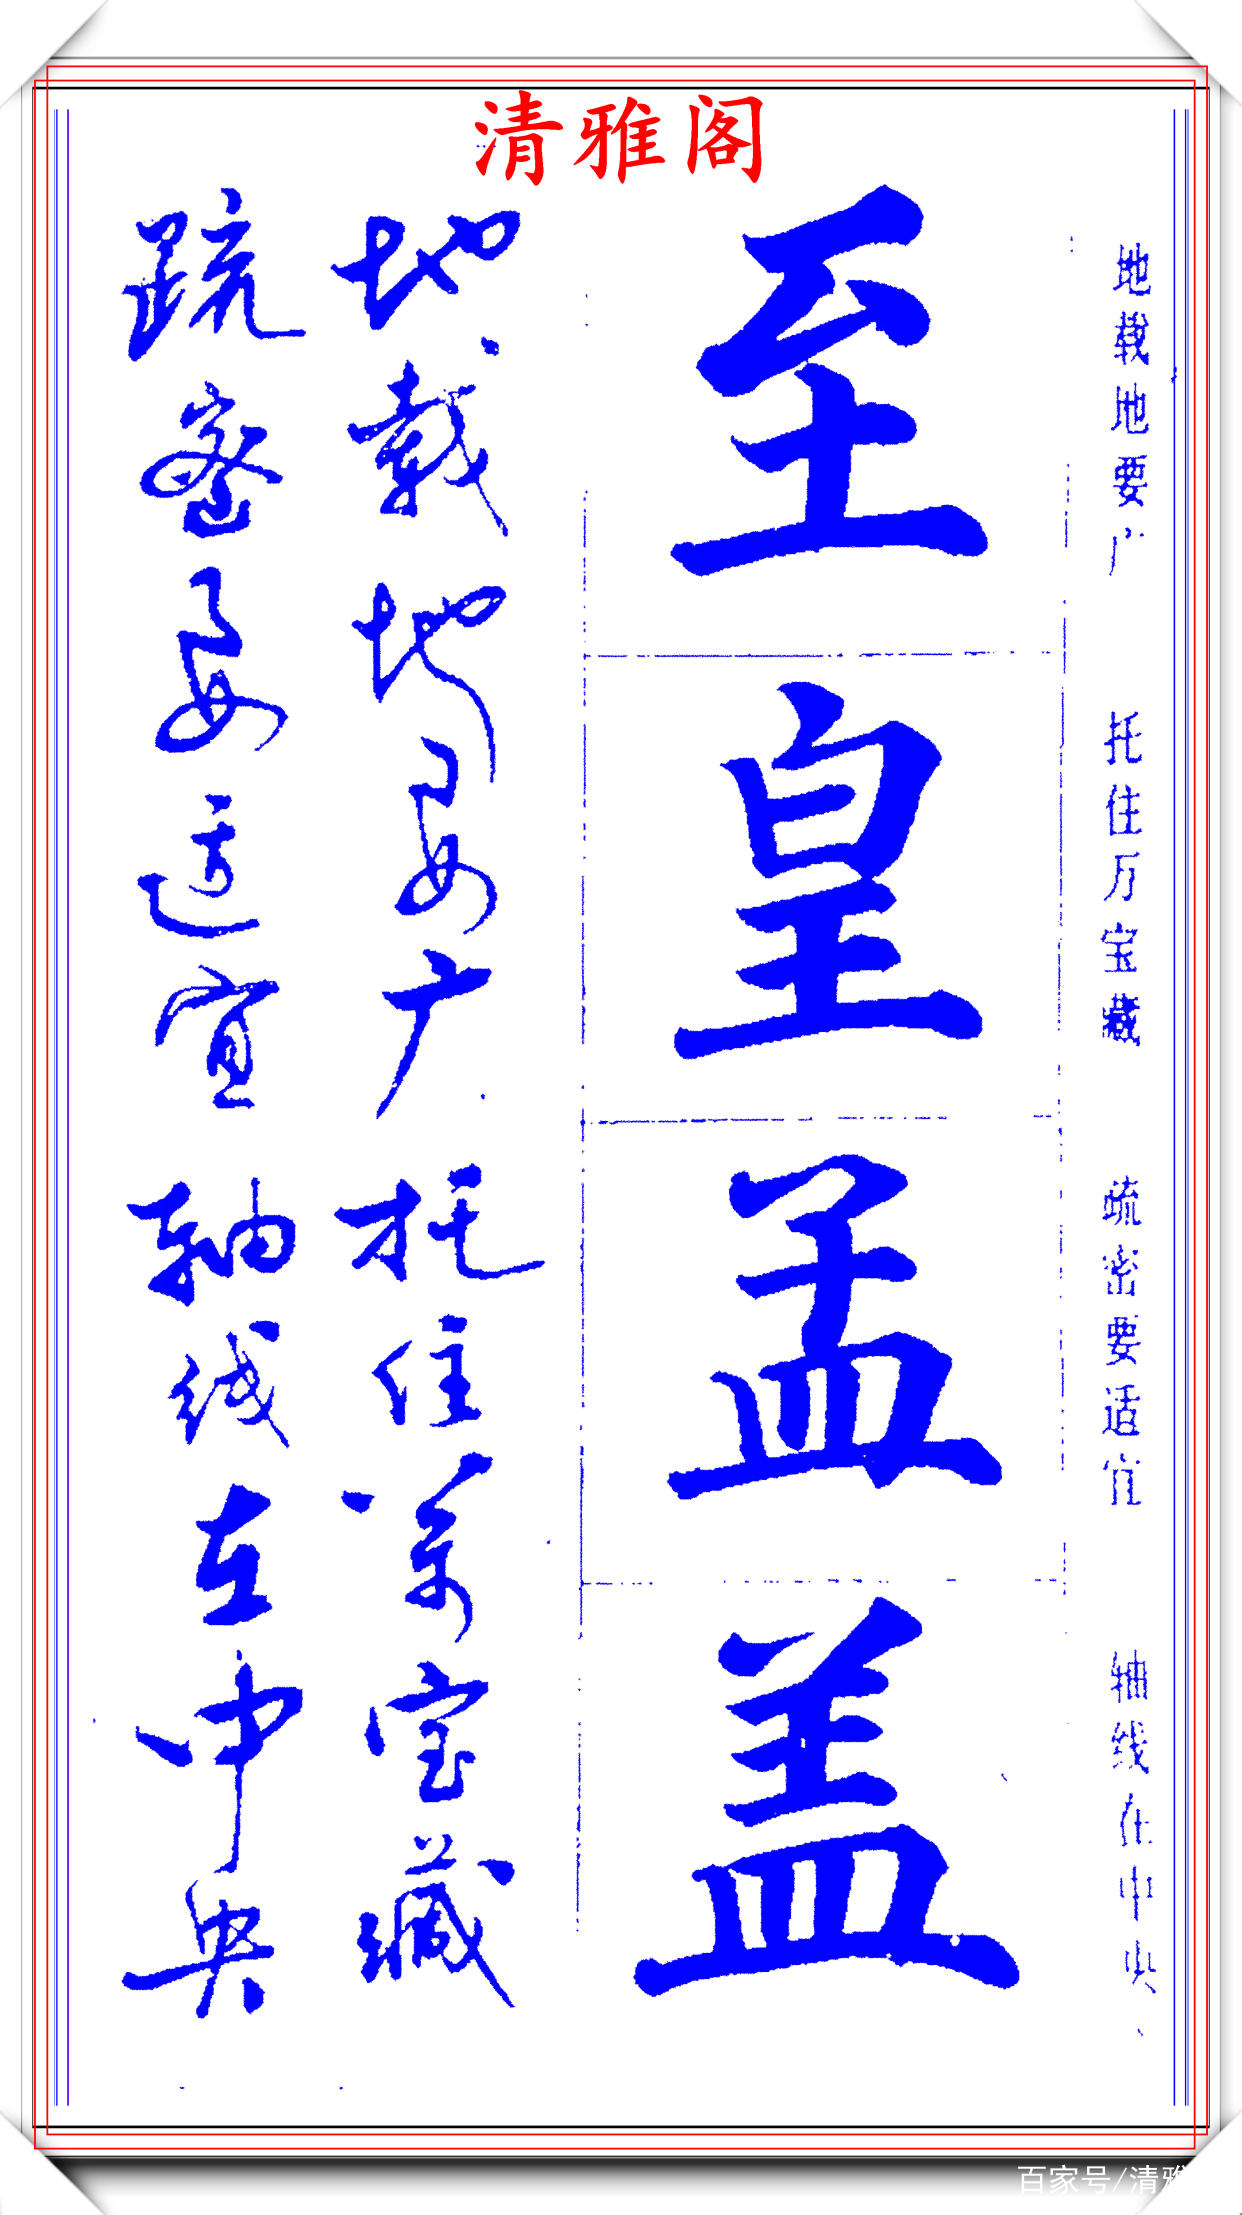 清雅阁
地载地要广 托住万宝藏 疏密要适宜 轴线在中央
至皇孟盖
地载地要广 托住万宝藏
疏密要适宜 轴线在中央
百家号/清雅